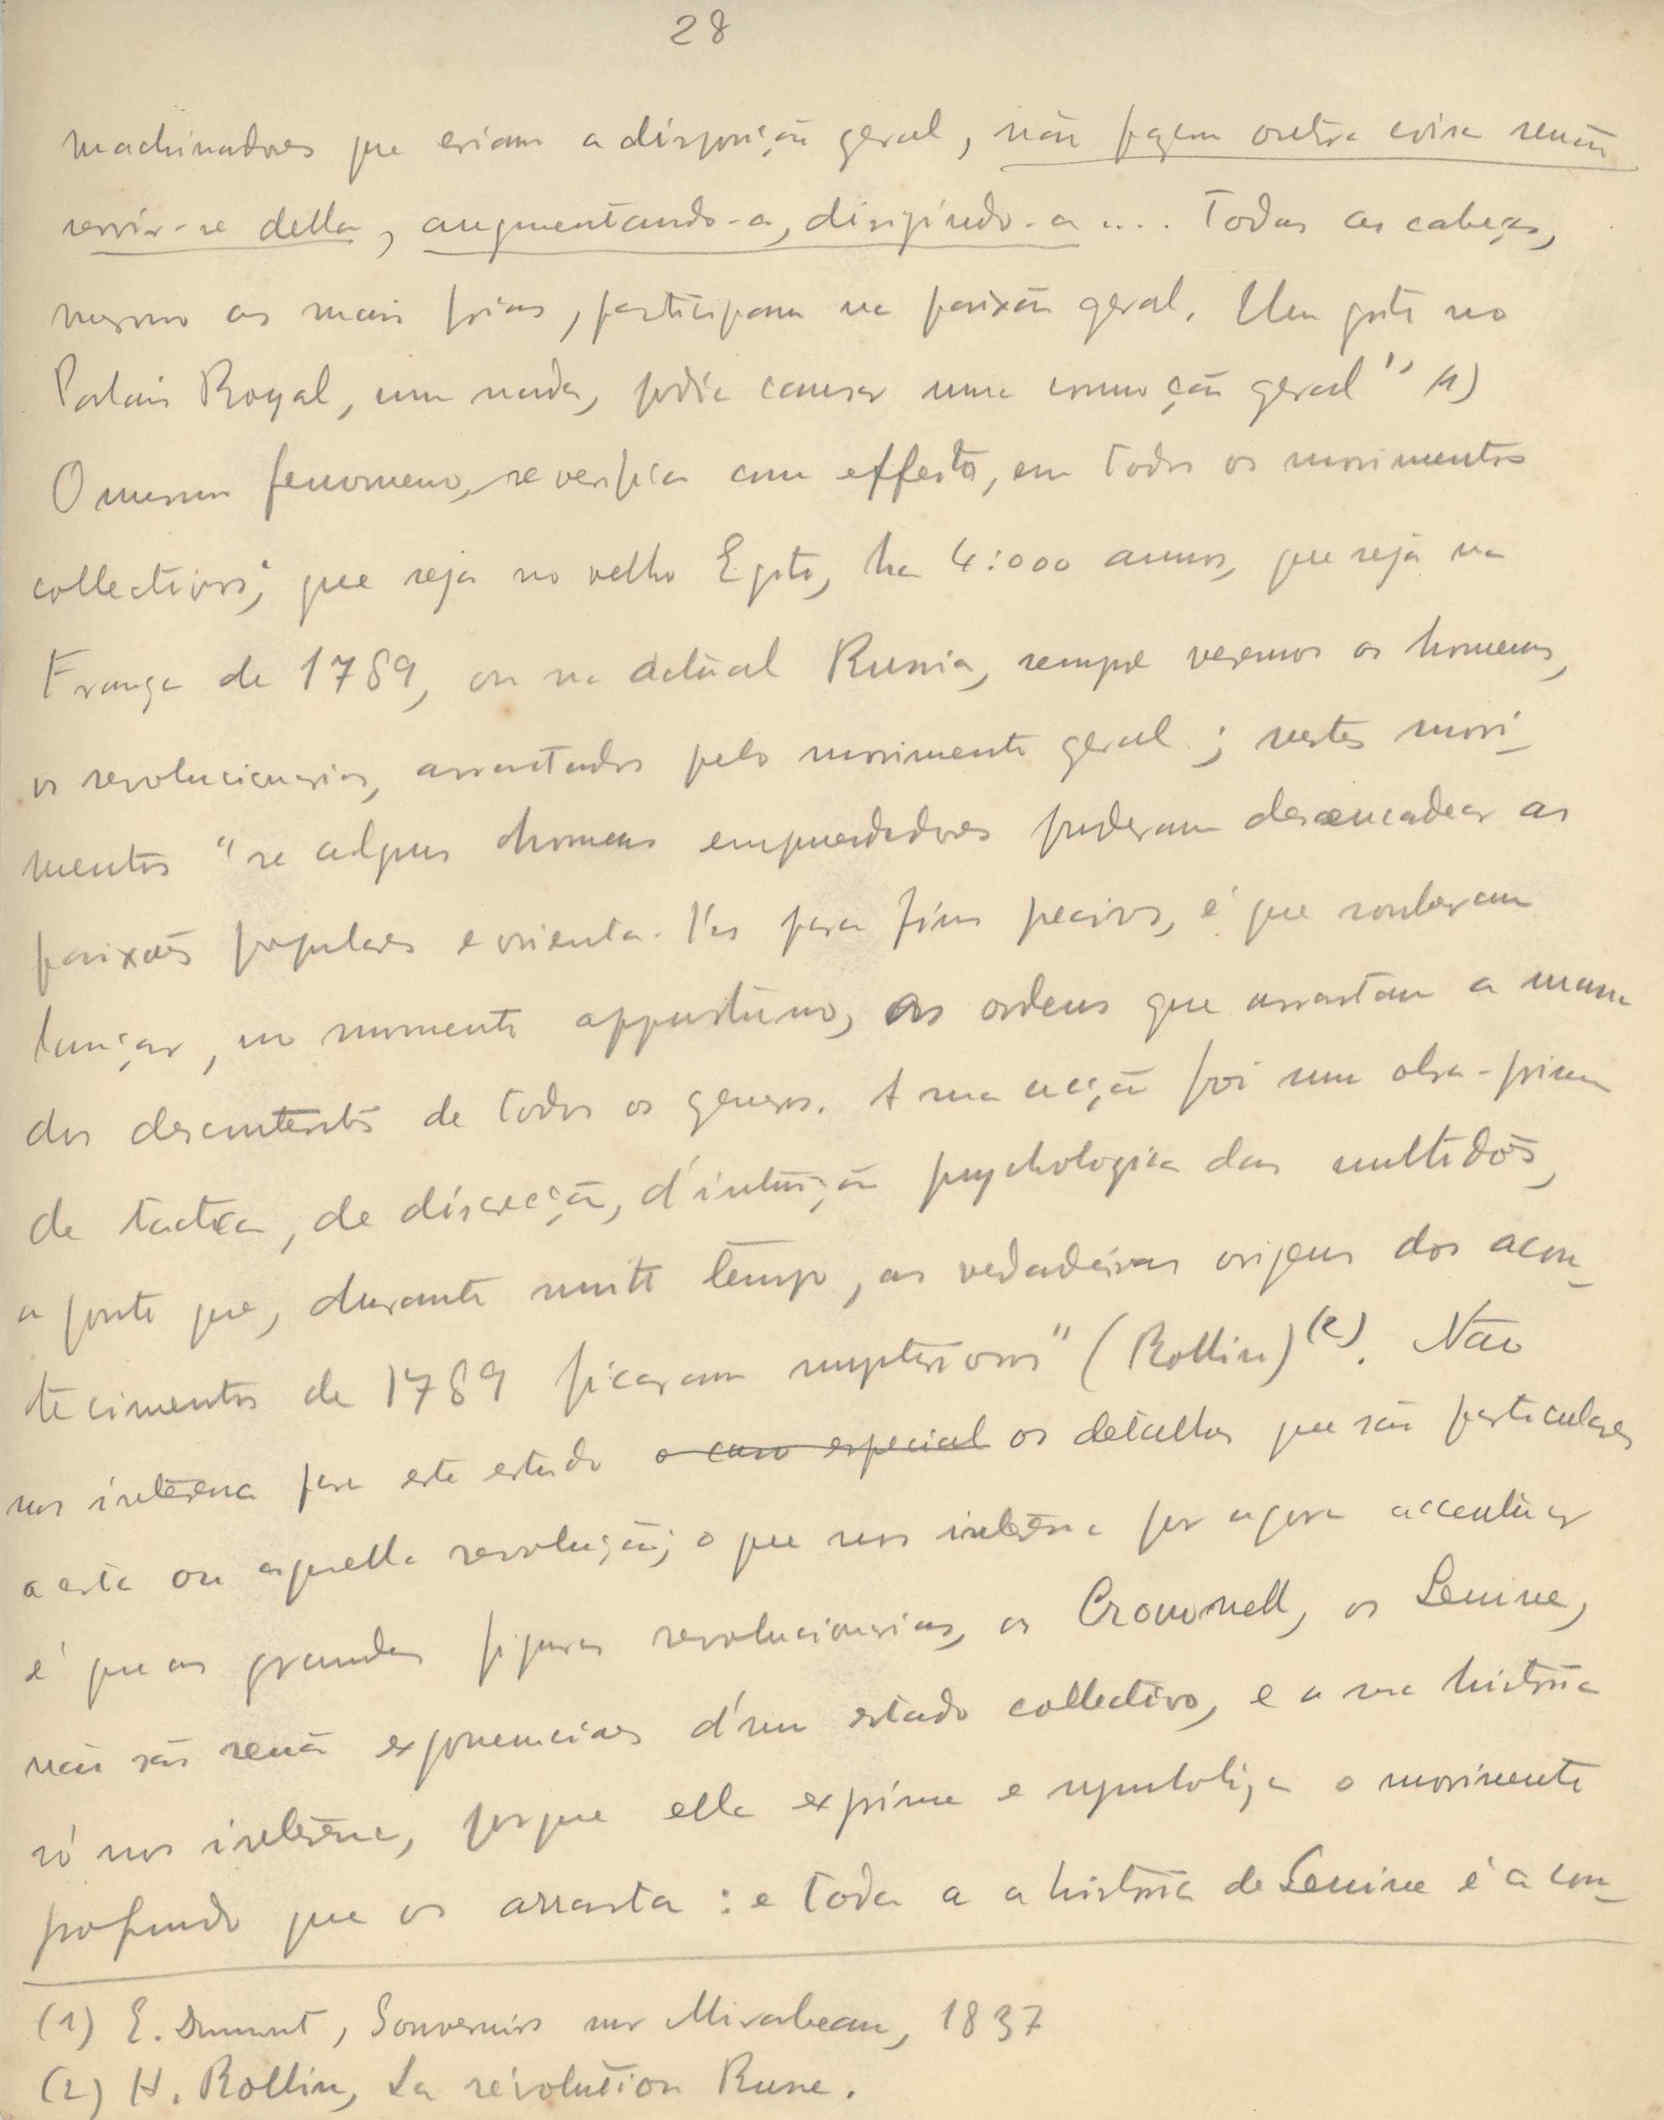 28
machinadores que criam a disposição geral, não fazem outra coisa senão
servir-se della, augmentando-a, dirigindo-a .... Todas as cabeças,
mesmo as mais frias, participam na paixão geral. Um grito no
Palais Royal, um nada, podia causar uma commoção geral" (1)
O mesmo fenomeno, se verifica com effeito, em todos os movimentos
collectivos; que seja no velho Egito, ha 4:000 annos, que seja na
França de 1789, ou na actual Russia, sempre veremos os homens,
os revolucionarios, arrastados pelo movimento geral; nestes movi-
mentos "se alguns homens emprendedores puderam desencadear as
paixões populares e orienta-l'as para fins precisos, é que souberam
lançar, no momento opportuno, as ordens que arrastam a massa
dos descontentes de todos os generos. A sua acção foi uma obra-prima
de tactica, de discreção, d'intuição psychologica das multidões,
a ponto que, durante muito tempo, as verdadeiras origens dos acon-
tecimentos de 1789 ficaram mysteriosas" (Rollin) (2). Não
nos interessa para este estudo o caso especial os detalhes que são particulares
a esta ou aquella revolução; o que nos interessa por agora accentuar
é que as grandes figuras revolucionarias, os Cromwell, os Lenine,
não são senão exponenciaes d'um estado collectivo, e a sua historia
só nos interessa, porque ella exprime e symboliza o movimento
profundo que os arrasta : e toda a a historia de Lenine é a con-
(1) E. Dumont, Souvenirs sur Mirabeau, 1837
(2) H. Rollin, La révolution Russe.